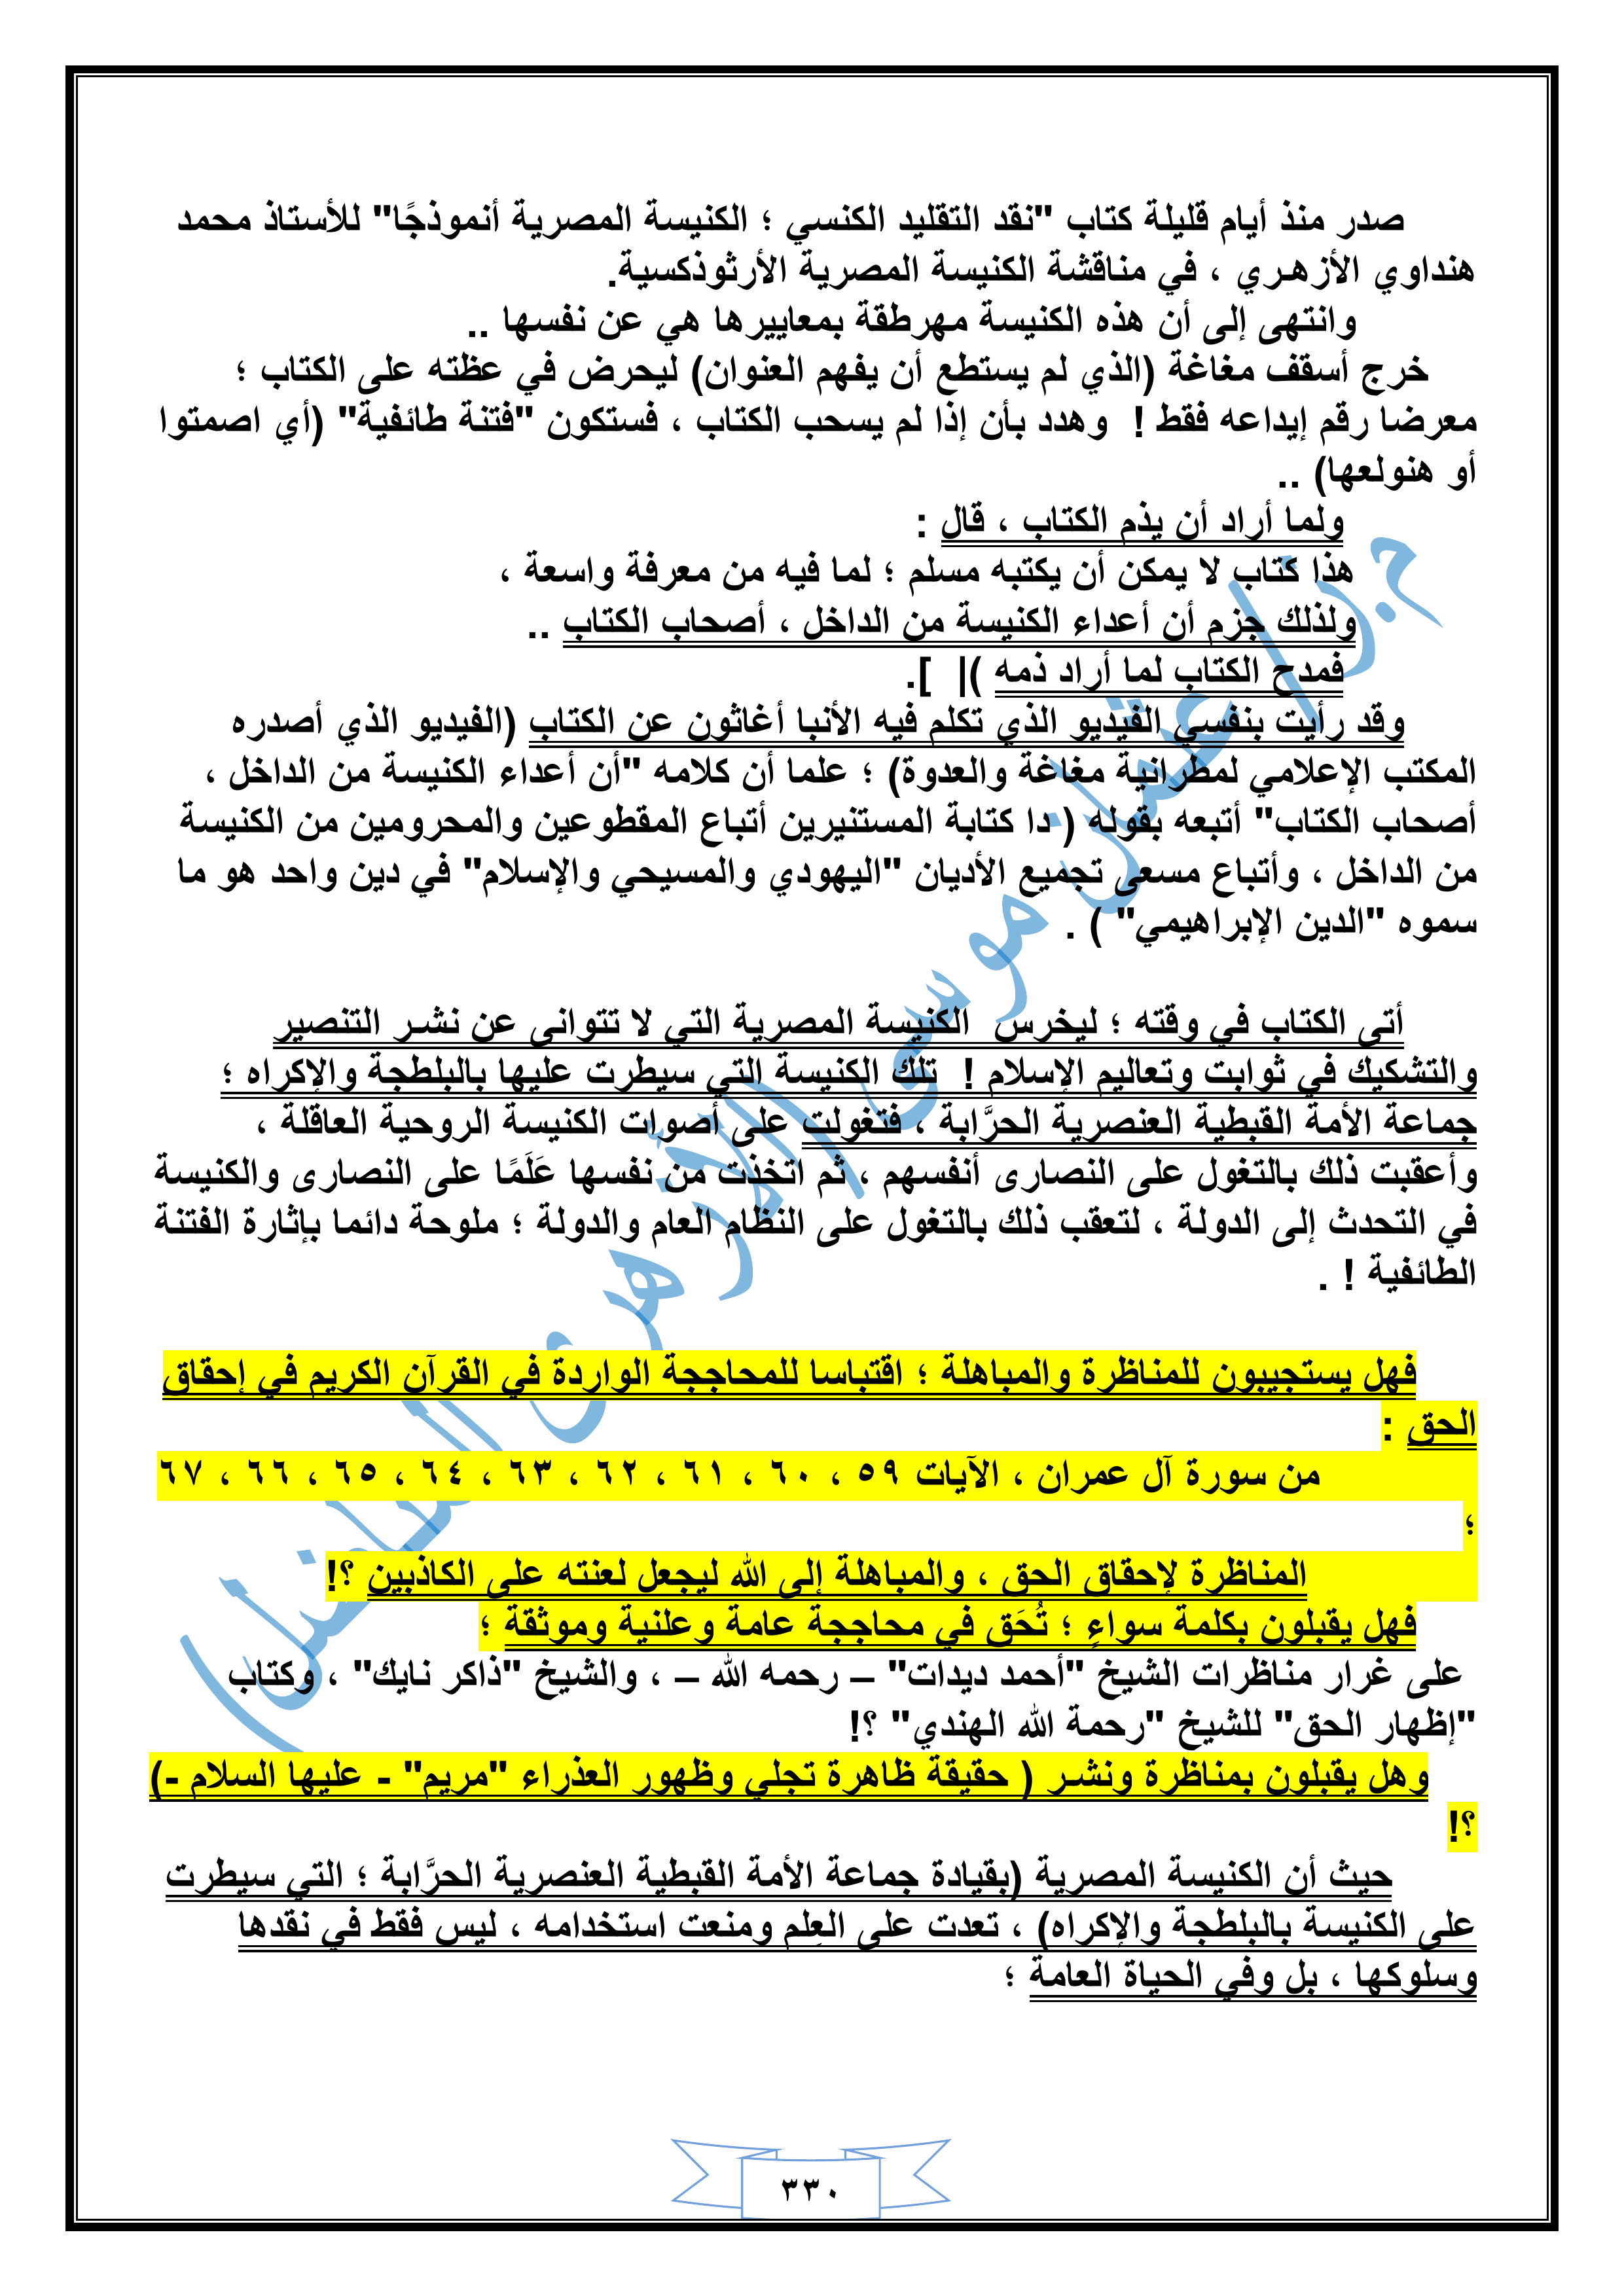 صدر منذ أيام قليلة كتاب "نقد التقليد الكنسي ؛ الكنيسة المصرية أنموذجًا" للأستاذ محمد
هنداوي الأزهـري ، في مناقشة الكنيسة المصرية الأرثوذكسية.
وانتهى إلى أن هذه الكنيسة مهرطقة بمعاييرها هي عن نفسها ..
خرج أسقف مغاغة (الذي لم يستطع أن يفهم العنوان) ليحرض في عظته على الكتاب ؛
معرضا رقم إيداعه فقط ! وهدد بأن إذا لم يسحب الكتاب ، فستكون "فتنة طائفية" (أي اصمتوا
أو هنولعها) ..
ولما أراد أن يذم الكتاب ، قال :
هذا كتاب لا يمكن أن يكتبه مسلم ؛ لما فيه من معرفة واسعة ،
ولذلك جزم أن أعداء الكنيسة من الداخل ، أصحاب الكتاب ..
فمدح الكتاب لما أراد ذمه )| ].
وقد رأيت بنفسي الفيديو الذي تكلم فيه الأنبا أغاثون عن الكتاب (الفيديو الذي أصدره
المكتب الإعلامي لمطرانية مغاغة والعدوة) ؛ علما أن كلامه "أن أعداء الكنيسة من الداخل ،
أصحاب الكتاب" أتبعه بقوله ( دا كتابة المستنيرين أتباع المقطوعين والمحرومين من الكنيسة
من الداخل ، وأتباع مسعى تجميع الأديان "اليهودي والمسيحي والإسلام" في دين واحد هو ما
سموه "الدين الإبراهيمي" ) .
أتى الكتاب في وقته ؛ ليخرس الكنيسة المصرية التي لا تتوانى عن نشـر التنصير
والتشكيك في ثوابت وتعاليم الإسلام ! تلك الكنيسة التي سيطرت عليها بالبلطجة والإكراه ؛
جماعة الأمة القبطية العنصرية الحرَّابة ، فتغولت على أصوات الكنيسة الروحية العاقلة ،
وأعقبت ذلك بالتغول على النصارى أنفسهم ، ثم اتخذت من نفسها عَلَمًا على النصارى والكنيسة
في التحدث إلى الدولة ، لتعقب ذلك بالتغول على النظام العام والدولة ؛ ملوحة دائما بإثارة الفتنة
الطائفية ! .
فهل يستجيبون للمناظرة والمباهلة ؛ اقتباسا للمحاججة الواردة في القرآن الكريم في إحقاق
الحق :
من سورة آل عمران ، الآيات ٥٩ ، ٦٠ ، ٦١ ، ٦٢ ، ٦٣ ، ٦٤ ، ٦٥ ، ٦٦ ، ٦٧
؛
المناظرة لإحقاق الحق ، والمباهلة إلى الله ليجعل لعنته على الكاذبين ؟!
فهل يقبلون بكلمة سواءٍ ؛ تُحَق في محاججة عامة وعلنية وموثقة ؛
على غرار مناظرات الشيخ "أحمد ديدات" – رحمه الله – ، والشيخ "ذاكر نايك" ، وكتاب
"إظهار الحق" للشيخ "رحمة الله الهندي" ؟!
وهل يقبلون بمناظرة ونشـر ( حقيقة ظاهرة تجلي وظهور العذراء "مريم" - عليها السلام -)
؟!
حيث أن الكنيسة المصرية (بقيادة جماعة الأمة القبطية العنصرية الحرَّابة ؛ التي سيطرت
على الكنيسة بالبلطجة والإكراه) ، تعدت على العِلم ومنعت استخدامه ، ليس فقط في نقدها
وسلوكها ، بل وفي الحياة العامة ؛
٣٣٠